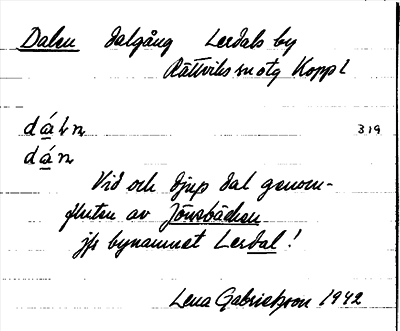 Dalen dalgång Lerdals by
Rättviks sn otg Koppl
dáln 319
dán
Vid och djup dal genom-
fluten av Jönsbäcken
jfr bynamnet Lerdal!
Lena Gabrielsson 1942